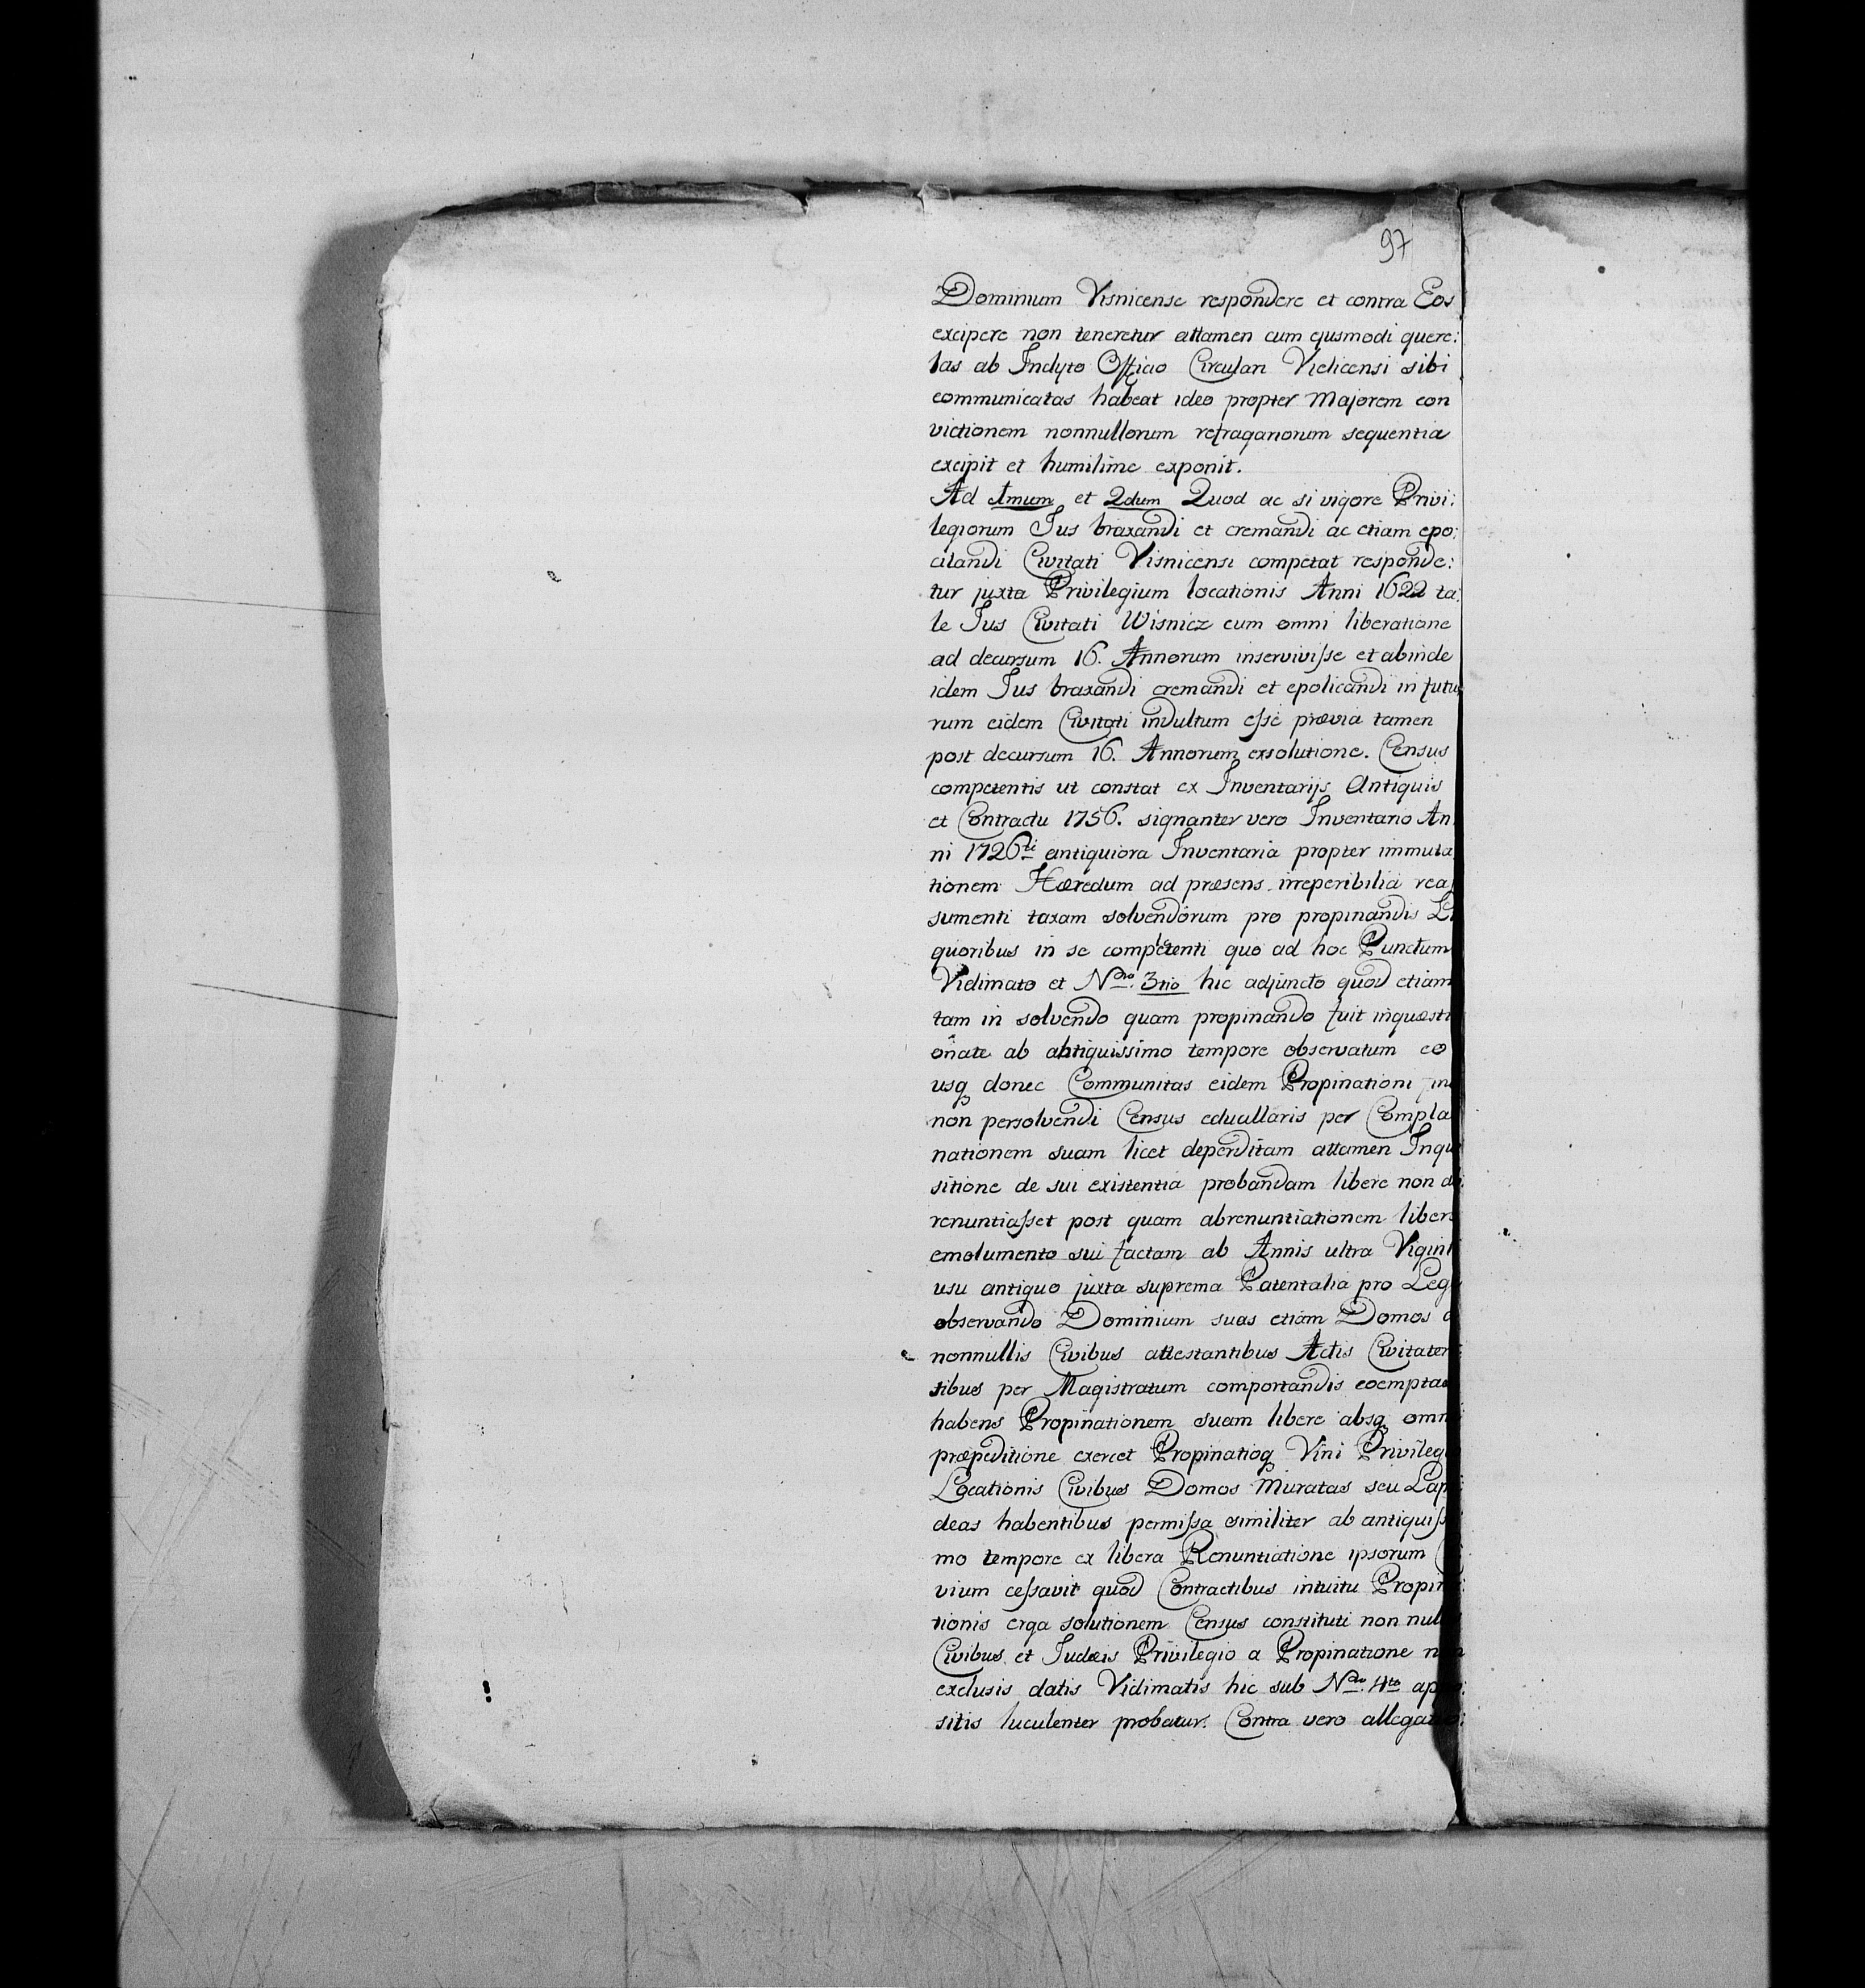 97
Dominium Visnicense respondere et contra Eos
excipere non teneretur attamen cum ejusmodi quere:
las ab Inclyto Officio Circulari Vielicensi sibi
communicatas habeat ideo propter Majorem con
victionem nonnullorum refragariorum sequentia
excipit et humilime exponit.
Ad 1mum et 2dum Quod ac si vigore Privi:
legiorum Jus braxandi et cremandi ac etiam epo:
cilandi Civitati Visnicensi competat responde:
tur juxta Privilegium locationis Anni 1622 ta:
le Jus Civitati Wisnicz cum omni liberatione
ad decursum 16. Annorum inservivisse et abinde
idem Jus braxandi cremandi et epolicandi in futu
rum eidem Civitati indultum esse prævia tamen
post decursum 16. Annorum exolutione. Census
competentis ut constat ex Inventarijs Antiquis
et Contractu 1756. signanter vero Inventario An
ni 1726ti antiquiora Inventaria propter immuta
tionem Hæredum ad præsens irreperibilia rea
sumenti taxam solvendorum pro propinandis Li
quoribus in se competenti quo ad hoc Punctum
Vidimato et Nro. 3tio hic adjuncto quod etiam
tam in solvendo quam propinando fuit inquæsti
onate ab abtiquissimo tempore observatum eo
usq donec Communitas eidem Propinationi in
non persolvendi Census educillaris per Compla
nationem suam licet deperditam attamen Inqui
sitione de sui existentia probandam libere non
renuntiasset post quam abrenuntiationem liber
emolumento sui factam ab Annis ultra Viginti
usu antiquo juxta suprema Patentalia pro Lege
observando Dominium suas etiam Domos a
nonnullis Civibus attestantibus Actis Civitaten
sibus per Magistratum comportandis coemptas
habens Propinationem suam libere absq omni
præpeditione exercet Propinatioq Vini Privileg
Locationis Civibus Domos Muratas seu Lapi
deas habentibus permissa similiter ab antiquiss
mo tempore ex libera Renuntiatione ipsorum
vium cessavit quod Contractibus intuitu Propin
tionis erga solutionem Census constituti non null
Civibus et Judæis Privilegio a Propinatione non
exclusis datis Vidimatis hic sub Nro. 4to ap
sitis luculenter probatur. Contra vero allegat